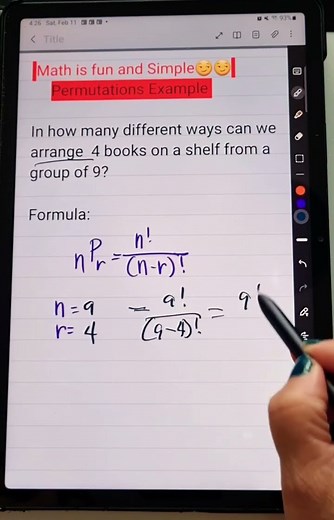 4:26 Sat, Feb 11
93%
Title
Math is fun and Simple😏😏
Permutations Example
In how many different ways can we
arrange 4 books on a shelf from a
group of 9?
Formula:
nPr = n! / (n-r)!
n = 9 = 9! / (9-4)! = 9!
r = 4